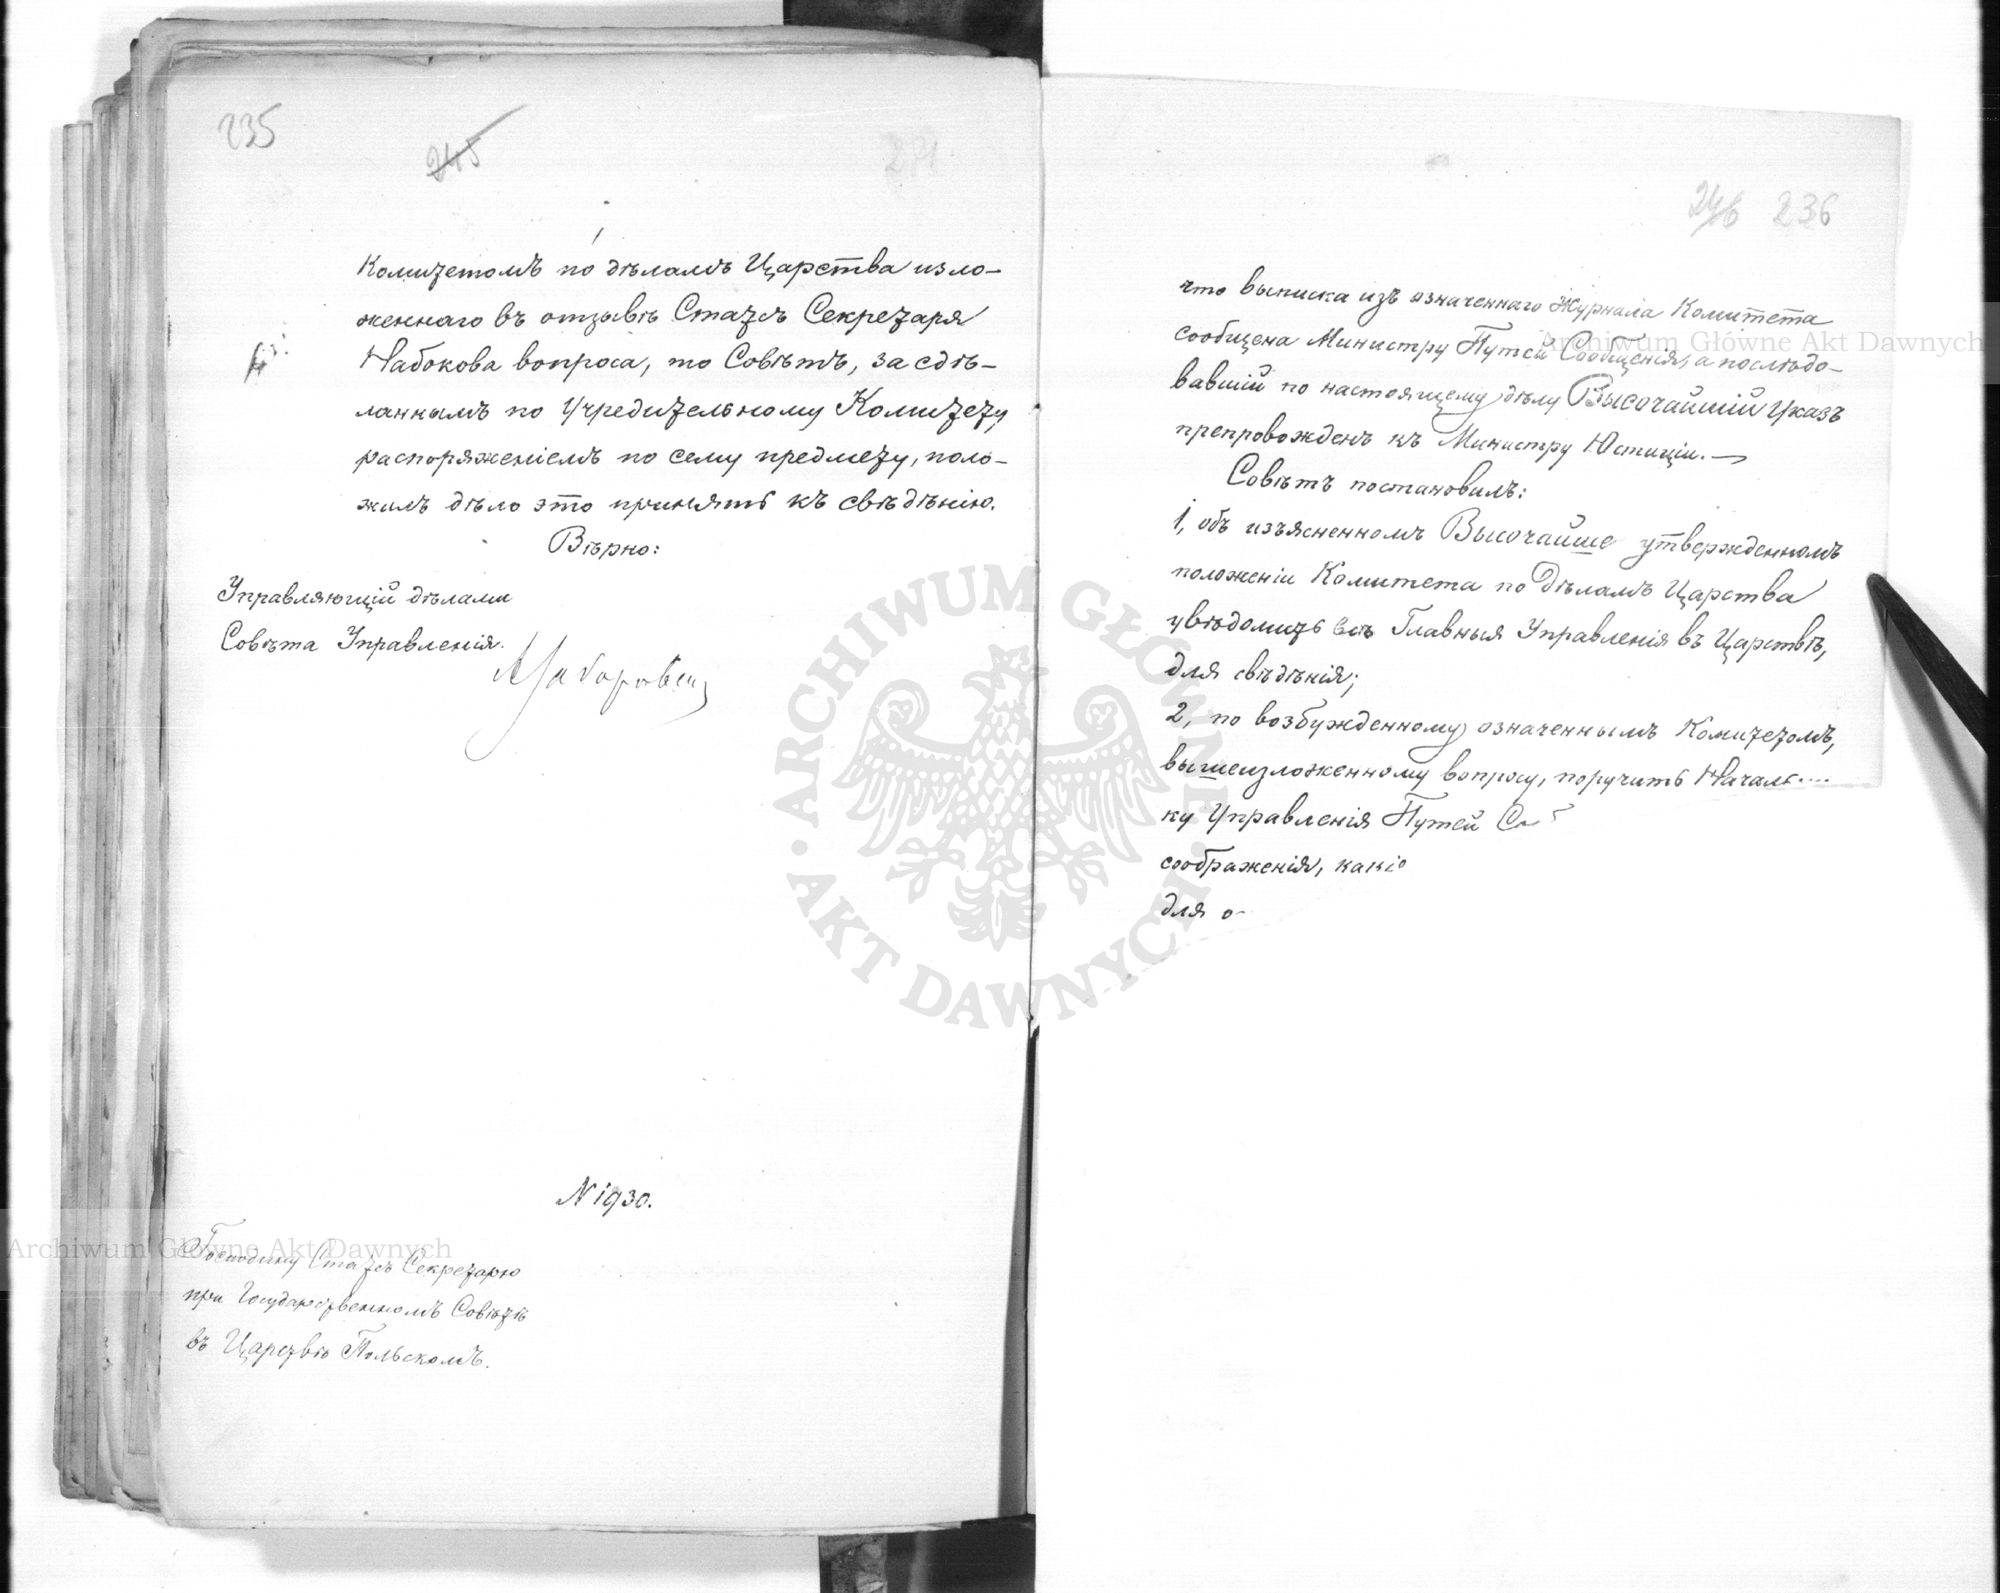 235
245
Комитетомъ по дѣламъ Царства изло-
женнаго въ отзывѣ Статсъ Секретаря
Набокова вопроса, то Совѣтъ, за сдѣ-
ланнымъ по Учредительному Комитету,
распоряженіемъ по сему предмету, поло-
жилъ дѣло это принять къ свѣдѣнію.
Вѣрно:
Управляющій дѣлами
Совѣта Управленія.
N 1930.
Господину Статсъ Секретарю
при Государственномъ Совѣтѣ
въ Царствѣ Польскомъ.
246 236
что выписка изъ означеннаго Журнала Комитета
сообщена Министру Путей Сообщенія, а послѣдо-
вавшій по настоящему дѣлу Высочайшій Указъ
препровожденъ къ Министру Юстиціи. —
Совѣтъ постановилъ:
1, объ изъясненномъ Высочайше утвержденномъ
положеніи Комитета по Дѣламъ Царства
увѣдомить всѣ Главныя Управленія въ Царствѣ,
для свѣдѣнія;
2, по возбужденному означеннымъ Комитетомъ,
вышеизложенному вопросу, поручить Началь
ку Управленія Путей
соображенія, какі
для
Archiwum Główne Akt Dawnych
Archiwum Główne Akt Dawnych
ARCHIWUM GŁÓWNE AKT DAWNYCH